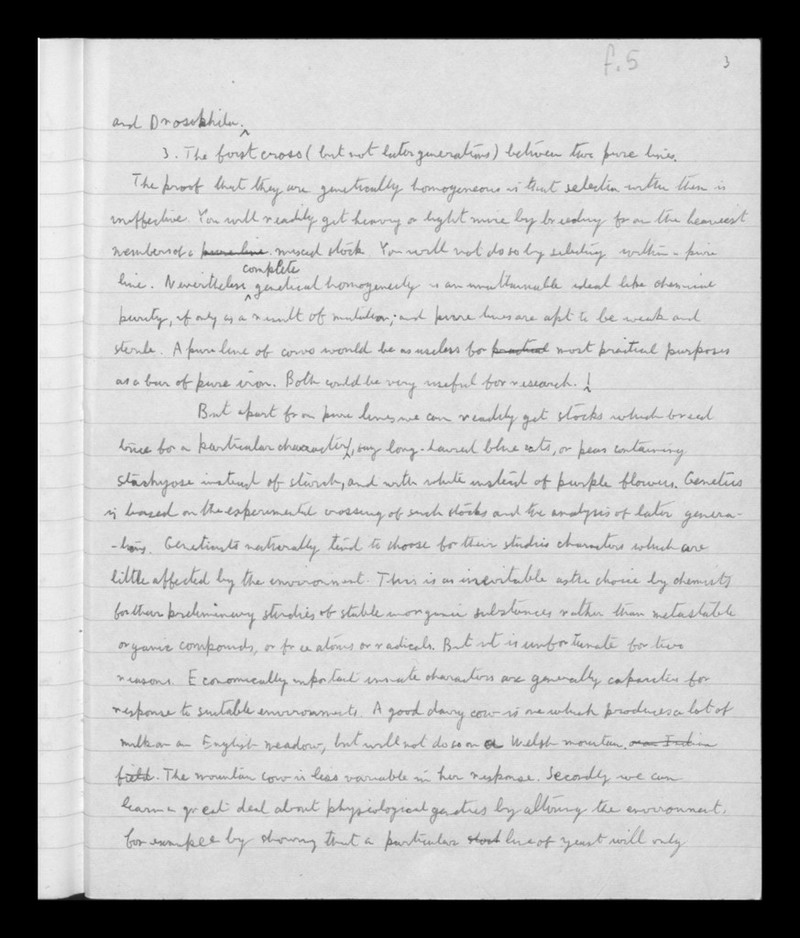 f.5 3
and Drosophila.
3. The first cross (but not later generations) between two pure lines.
The proof that they are genetically homogeneous is that selection within them is
ineffective. You will readily get heavy or light mice by breeding from the heaviest
members of a pure line mixed stock. You will not do so by selecting within a pure
line. Nevertheless complete genetical homogeneity is an unattainable ideal like chemical
purity, if only as a result of mutation; and pure lines are apt to be weak and
sterile. A pure line of cows would be as useless for practical most practical purposes
as a bar of pure iron. Both could be very useful for research.
But apart from pure lines we can readily get stocks which breed
true for a particular character, say long-haired blue cats, or peas containing
stachyose instead of starch, and with white instead of purple flowers. Genetics
is based on the experimental crossing of such stocks and the analysis of later genera-
-tions. Geneticists naturally tend to choose for their studies characters which are
little affected by the environment. This is as inevitable as the choice by chemists
for their preliminary studies of stable inorganic substances rather than metastable
organic compounds, or free atoms or radicals. But it is unfortunate for two
reasons. Economically important innate characters are generally capacities for
response to suitable environments. A good dairy cow is one which produces a lot of
milk on an English meadow, but will not do so on a Welsh mountain. or an Indian
field. The mountain cow is less variable in her response. Secondly we can
learn a great deal about physiological genetics by altering the environment,
for example by showing that a particular stock line of yeast will only